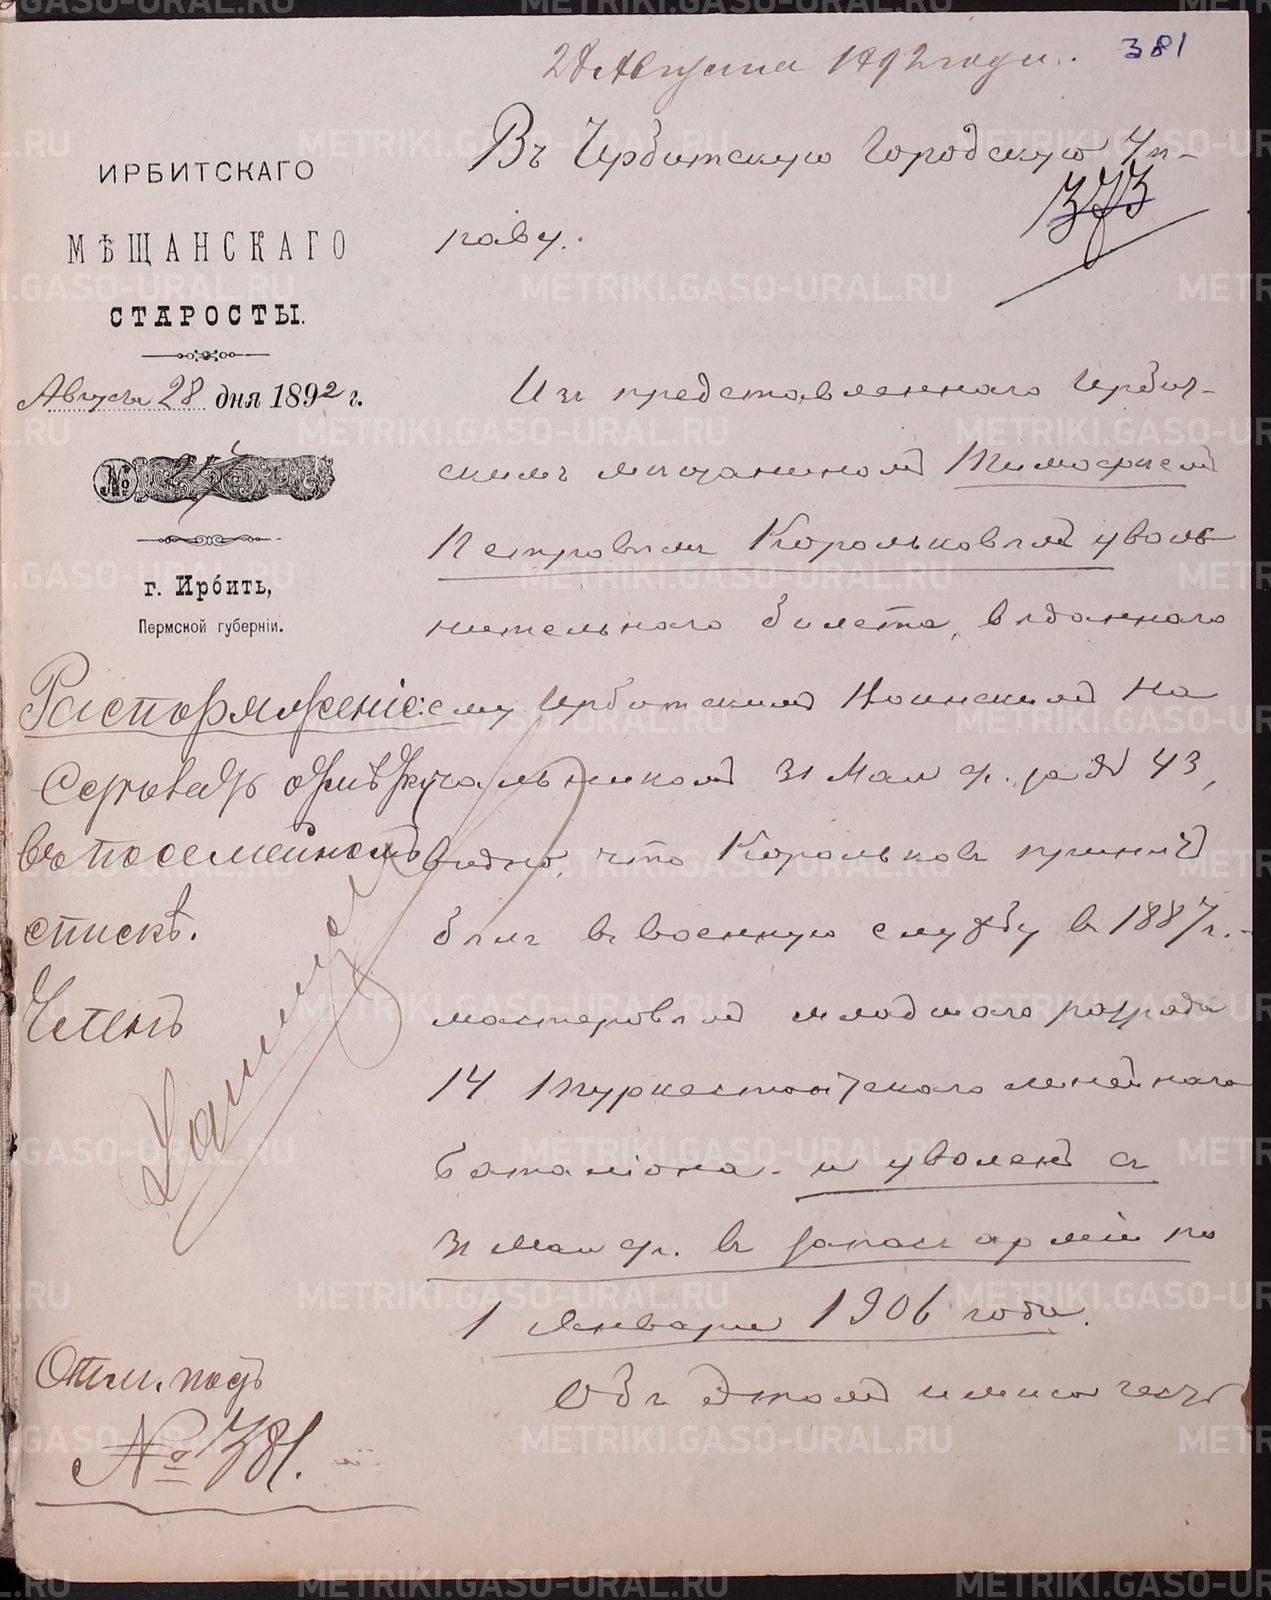 28 Августа 1892 года.
381
Въ Ирбитскую Городскую Уп-
раву.
373
ИРБИТСКАГО
МѢЩАНСКАГО
СТАРОСТЫ.
Августа 28 дня 1892 г.
№
г. Ирбить,
Пермской губерніи.
Изъ представленнаго Ирбит-
скимъ мѣщаниномъ Тимофеемъ
Петровымъ Корольковымъ уволь
нительнаго билета, выданнаго
ему Ирбитскимъ Воинскимъ На
чальникомъ 31 Мая за № 43,
видно, что Корольковъ принятъ
былъ въ военную службу въ 1887 г.
мастеровымъ младшаго разряда
14 Туркестанскаго линейнаго
баталіона и уволенъ съ
31 Мая въ запасъ арміи по
1 Января 1906 года.
Объ этомъ имѣю честь
Распоряженіе:
въ посемейномъ
спискѣ.
Членъ
Отм. подъ
№ 381.
METRIKI.GASO-URAL.RU